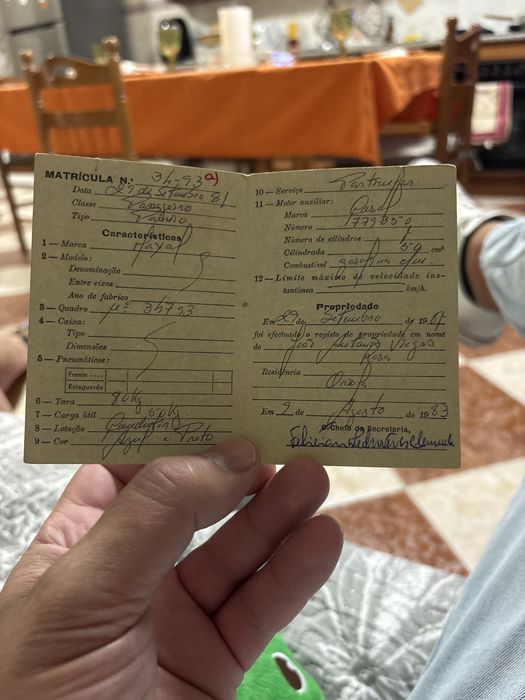 MATRÍCULA N.º 34793 a)
Data 29 de Setembro 81
Classe Passageiro
Tipo
Características
1 — Marca
2 — Modelo:
Denominação
Entre eixos
Ano de fabrico
3 — Quadro nº 34793
4 — Caixa:
Tipo
Dimensões
5 — Pneumáticos:
Frente
Retaguarda
6 — Tara 80 kg
7 — Carga útil 50 kg.
8 — Lotação
9 — Cor Azul e Preto
10 — Serviço Particular.
11 — Motor auxiliar:
Marca Casal
Número 1779350
Número de cilindros 1
Cilindrada 50 cm³
Combustível gasolina
12 — Limite máximo de velocidade ins-
tantânea km/h.
Propriedade
Em 29 de Setembro de 1981
foi efectuado o registo de propriedade em nome
de João Viegas
Rosa
Residência
Em 2 de Agosto de 1983
O Chefe da Secretaria,